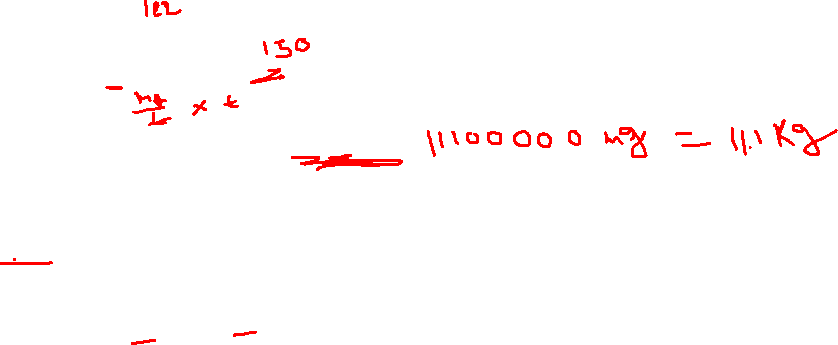 122
150
mg/L × t
11100000 mg = 11.1 Kg